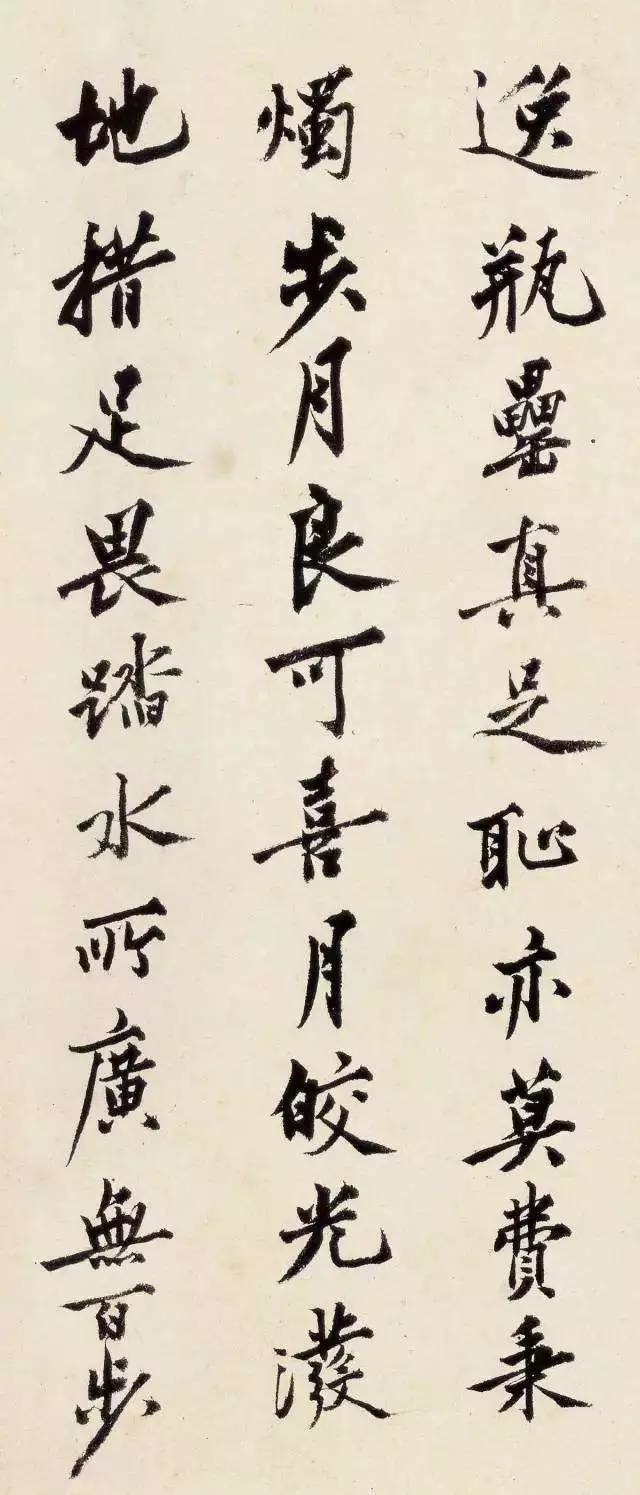 送瓶罍真足恥亦莫費秉
燭步月良可喜月皎光潑
地措足畏踏水所廣無百步